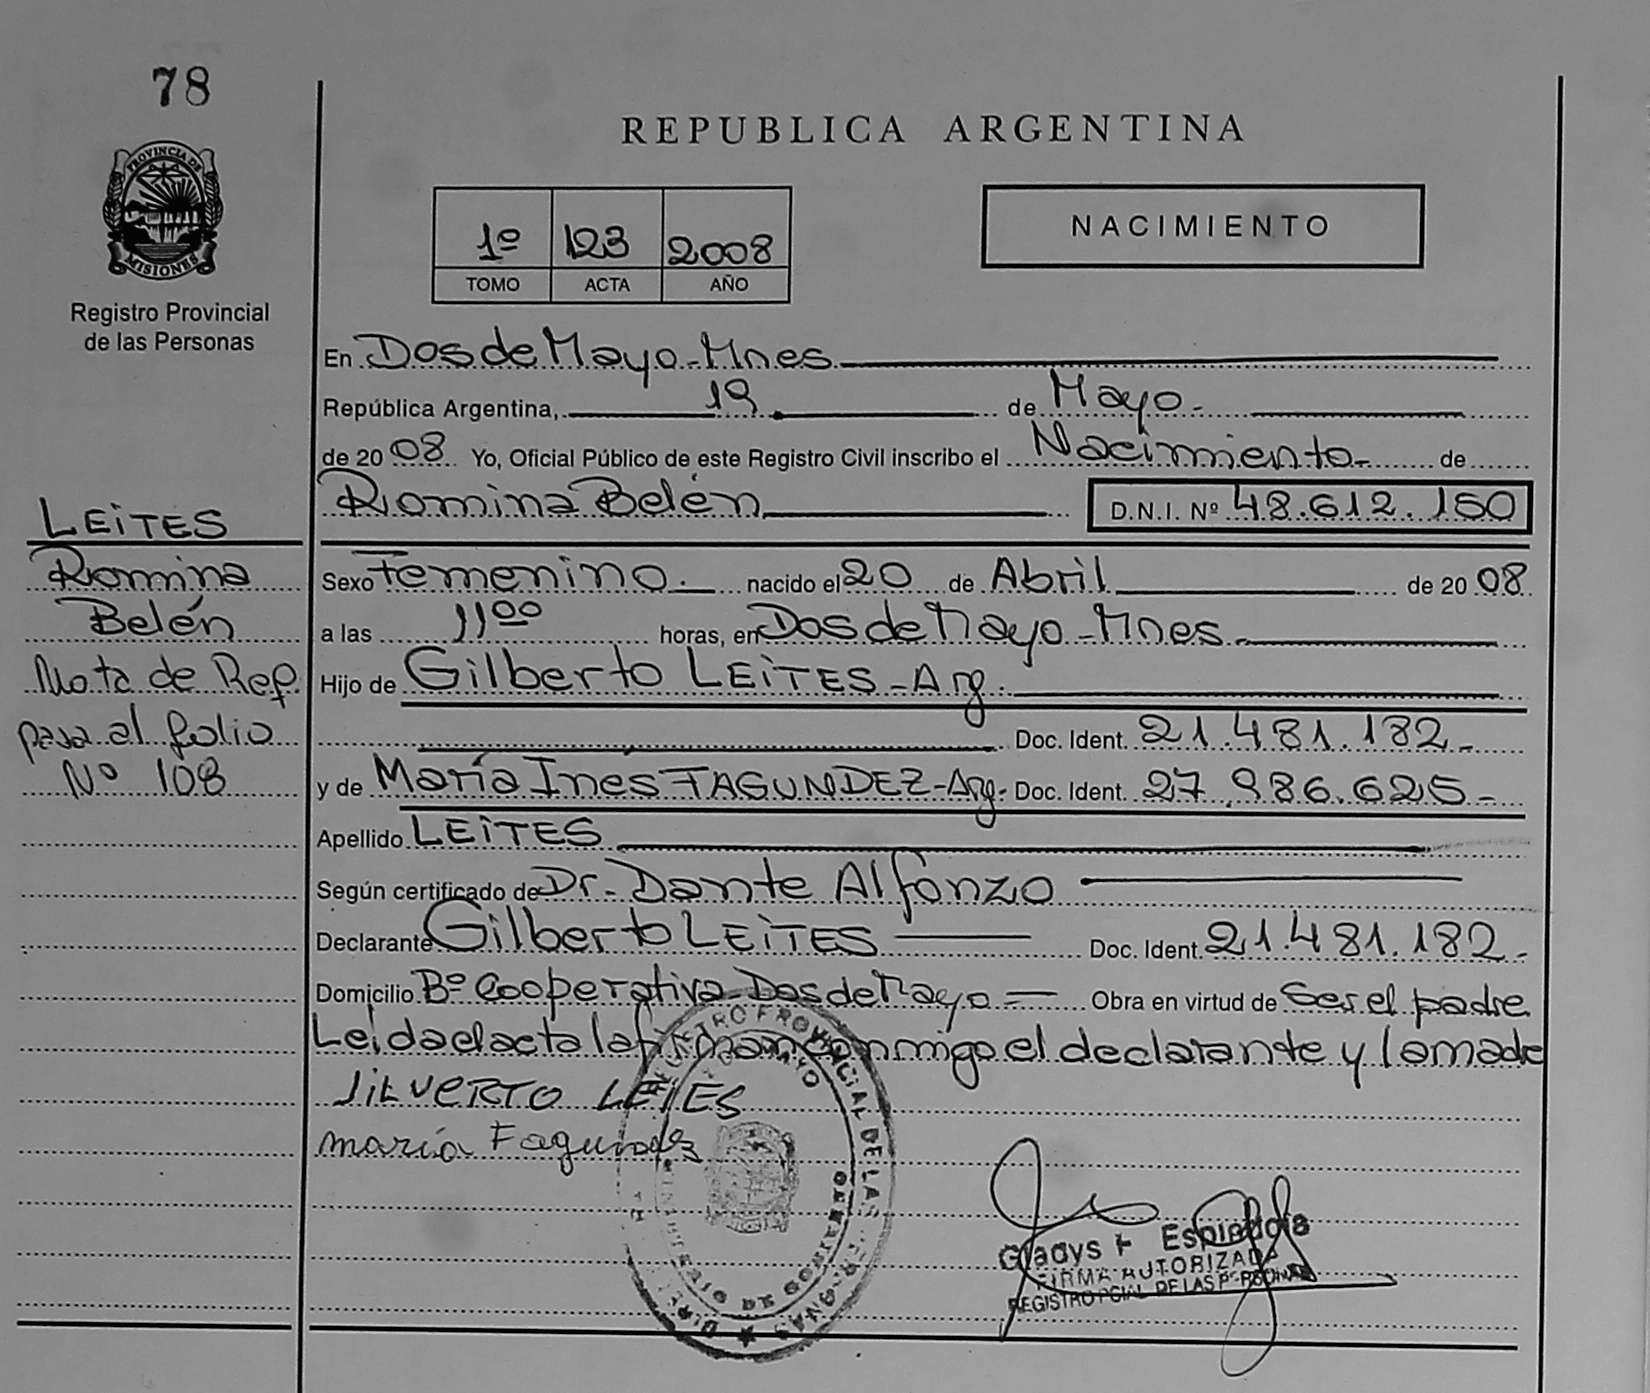 78
PROVINCIA DE
MISIONES
Registro Provincial
de las Personas
REPUBLICA ARGENTINA
1º 123 2008
TOMO ACTA AÑO
NACIMIENTO
En Dos de Mayo - Mnes
República Argentina, 19 de Mayo -
de 20 08 Yo, Oficial Público de este Registro Civil inscribo el Nacimiento - de
Romina Belén D.N.I. Nº 48.612.150
LEITES
Romina
Belén
Nota de Ref.
pasa al folio
Nº 108
Sexo Femenino. nacido el 20 de Abril de 20 08
a las 11ºº horas, en Dos de Mayo - Mnes -
Hijo de Gilberto LEITES - Arg.
Doc. Ident. 21.481.182 -
y de María Ines FAGUNDEZ - Arg. Doc. Ident. 27.986.625 -
Apellido LEITES
Según certificado de Dr. Dante Alfonzo
Declarante Gilberto LEITES Doc. Ident. 21.481.182 -
Domicilio Bº Cooperativa - Dos de Mayo - Obra en virtud de Ser el padre
Leida el acta la firman conmigo el declarante y la madre
JILVERTO LEITES
maria Fagundez
REGISTRO PROVINCIAL DE LAS PERSONAS
Gladys F Espindola
FIRMA AUTORIZADA
REGISTRO PCIAL DE LAS PERSONAS